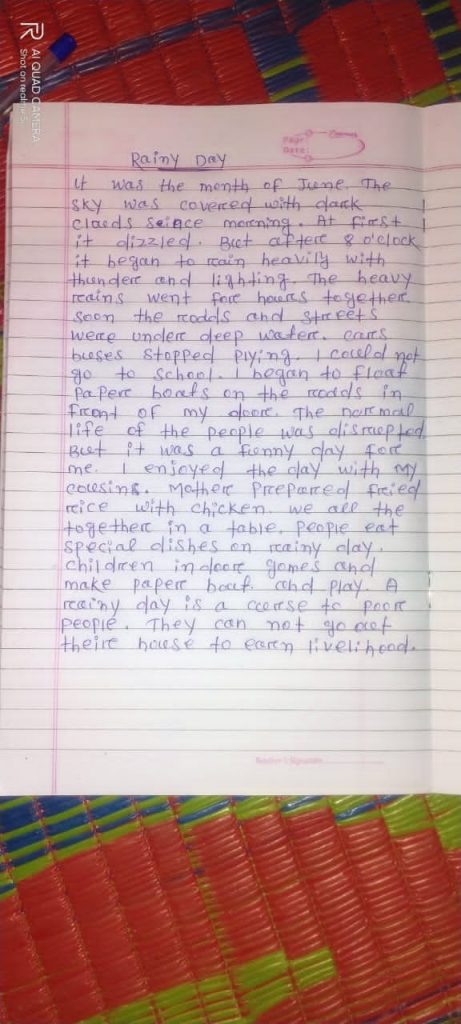 AI QUAD CAMERA
Shot on realme 5
Page:
Date:
Rainy Day
It was the month of June. The
sky was covered with dark
clauds seince morning. At first
it dizzled. But after 8 o'clock
it began to rain heavily with
thunder and lighting. The heavy
rains went for hours together.
Soon the rodds and streets
were under deep water. cars
buses stopped plying. I could not
go to school. I began to float
Paper boats on the rodds in
front of my door. The normal
life of the people was disrupted.
But it was a funny day for
me. I enjoyed the day with my
cousins. Mother Prepared fried
rice with chicken. we all the
together in a table. People eat
special dishes on rainy day.
children indoor gomes and
make paper boat. and play. A
rainy day is a curse to poor
people. They can not go out
their house to earn livelihood.
Teacher's Signature